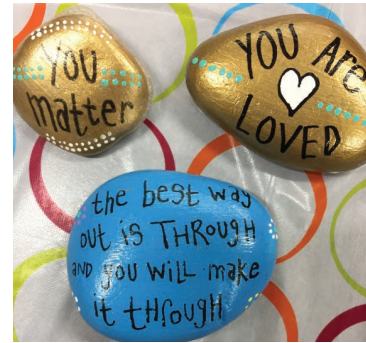 You
matter
YOU ARe
LOVED
the best way
out is THRouGH
AND you WiLL make
it through